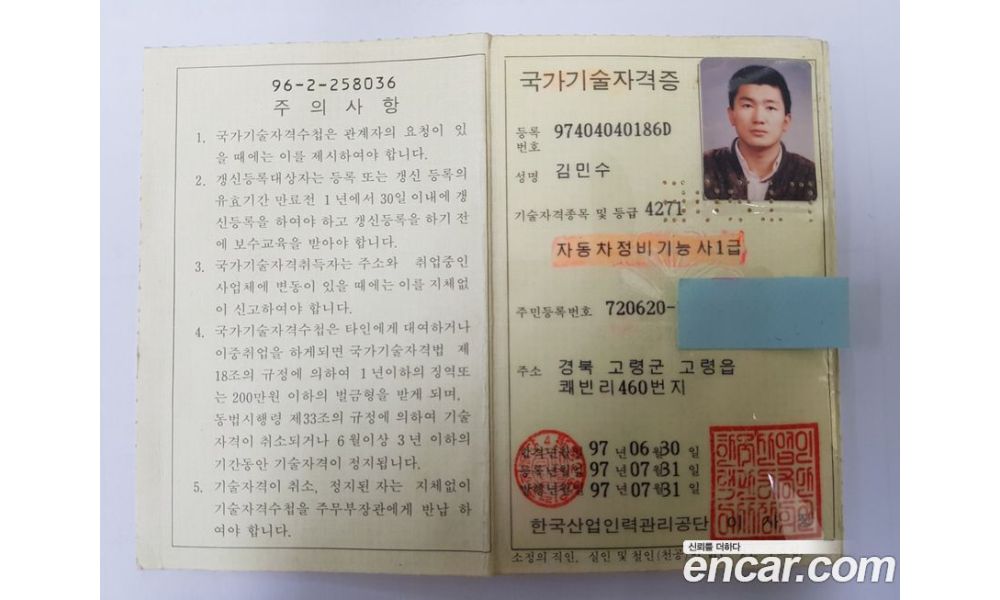 96-2-258036
주 의 사 항
1. 국가기술자격수첩은 관계자의 요청이 있
을 때에는 이를 제시하여야 합니다.
2. 갱신등록대상자는 등록 또는 갱신 등록의
유효기간 만료전 1년에서 30일 이내에 갱
신등록을 하여야 하고 갱신등록을 하기 전
에 보수교육을 받아야 합니다.
3. 국가기술자격취득자는 주소와 취업중인
사업체에 변동이 있을 때에는 이를 지체없
이 신고하여야 합니다.
4. 국가기술자격수첩은 타인에게 대여하거나
이중취업을 하게되면 국가기술자격법 제
18조의 규정에 의하여 1년이하의 징역또
는 200만원 이하의 벌금형을 받게 되며,
동법시행령 제33조의 규정에 의하여 기술
자격이 취소되거나 6월이상 3년 이하의
기간동안 기술자격이 정지됩니다.
5. 기술자격이 취소, 정지된 자는 지체없이
기술자격수첩을 주무부장관에게 반납 하
여야 합니다.
국가기술자격증
등록번호 97404040186D
성명 김민수
기술자격종목 및 등급 4271
자동차정비기능사1급
주민등록번호 720620-
주소 경북 고령군 고령읍
쾌빈리460번지
합격년월일 97년06월30일
등록년월일 97년07월31일
발행년월일 97년07월31일
한국산업인력관리공단 이사장
소정의 직인, 실인 및 철인(천공)
신뢰를 더하다
encar.com